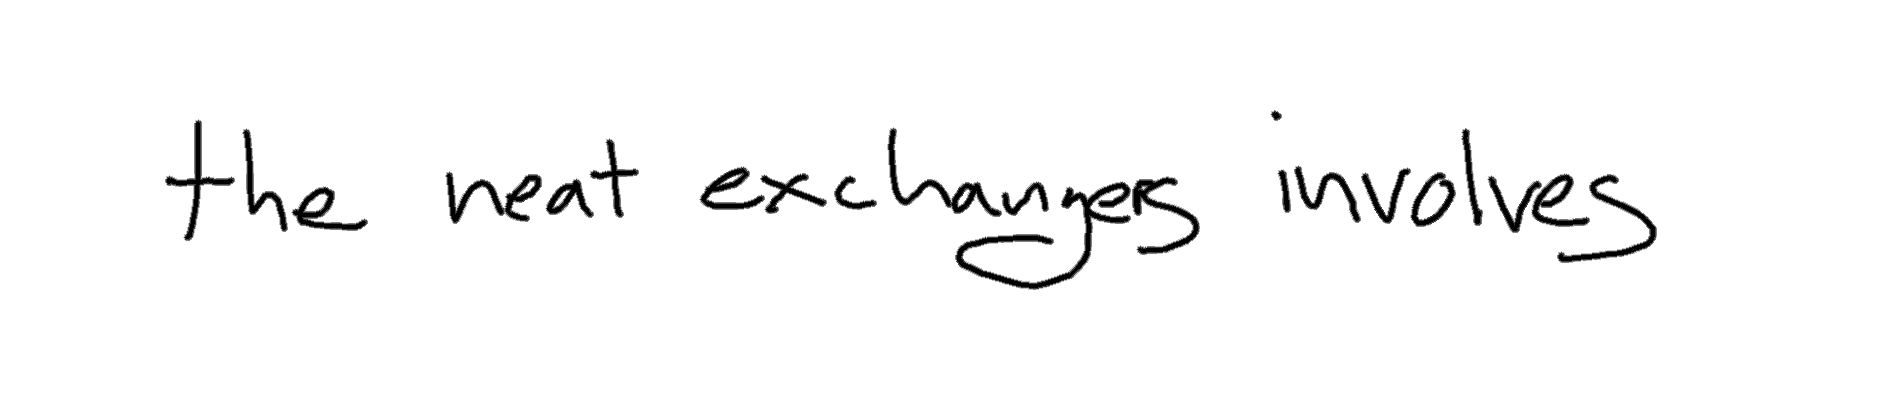 the neat exchangers involves